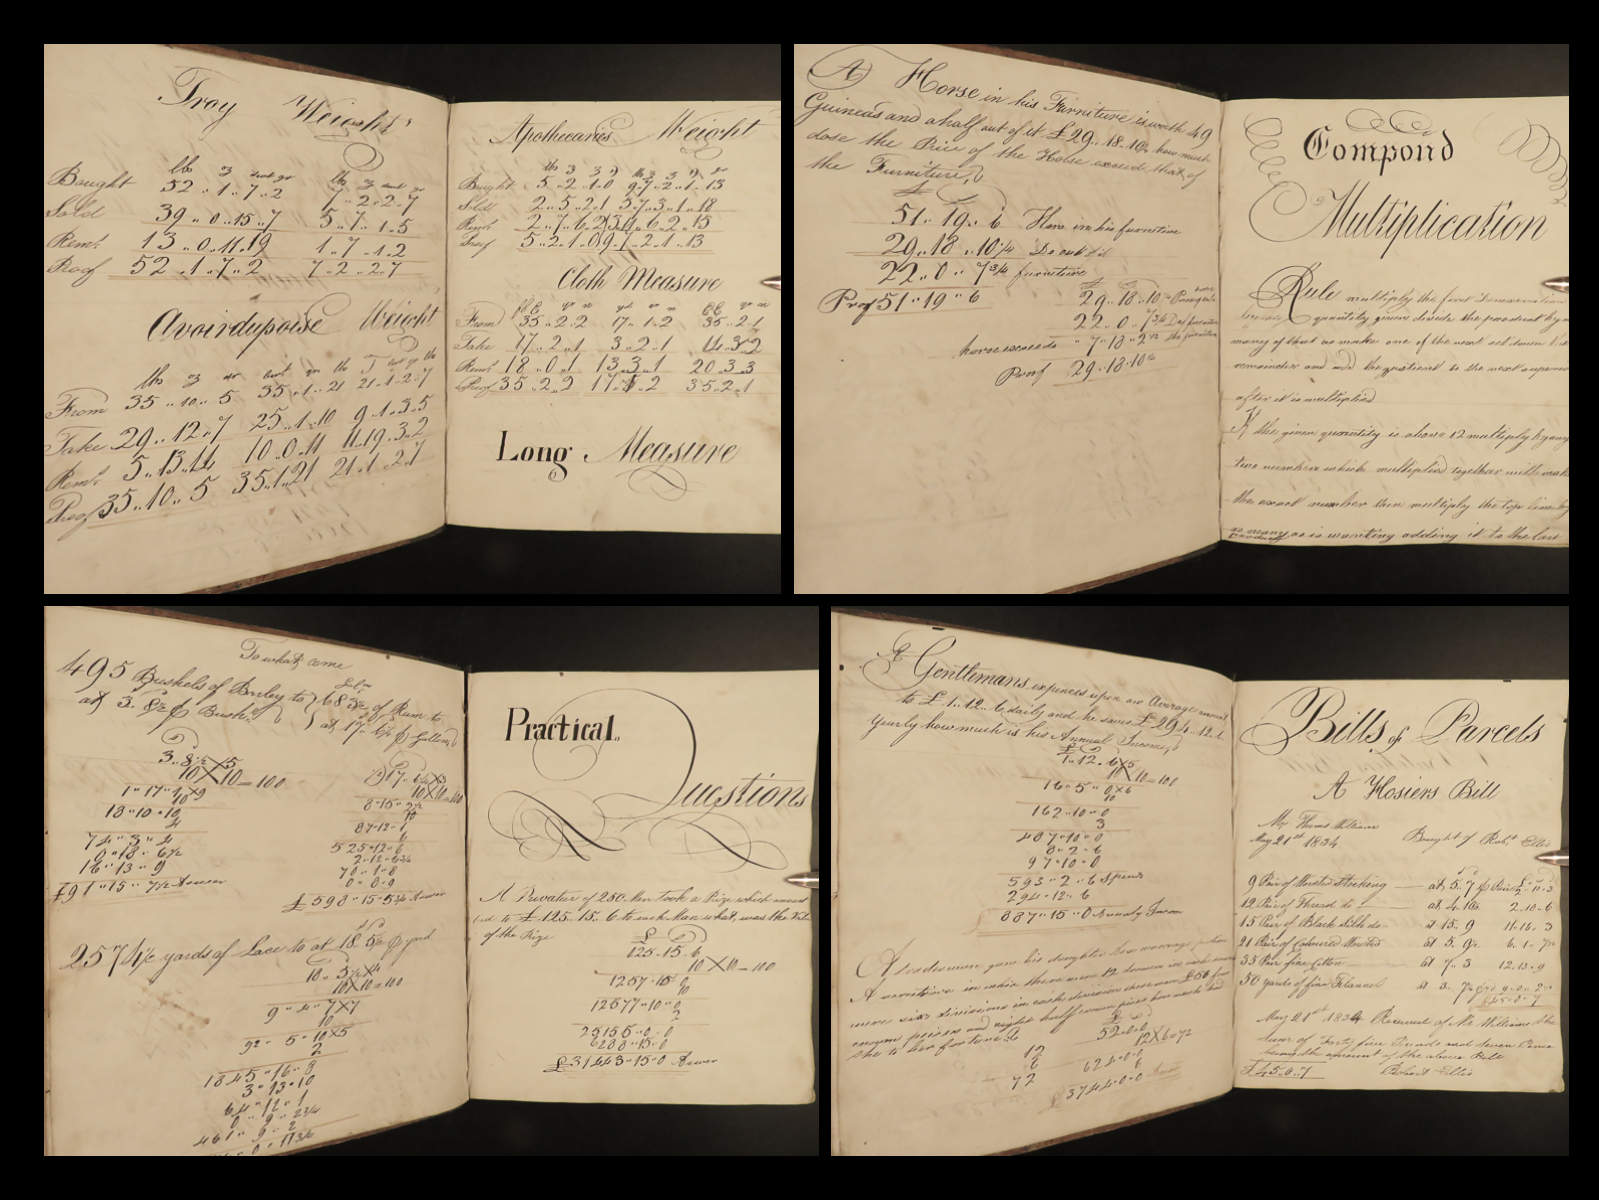 Troy Weight
lbs oz dwt gr lb oz dwt gr
Bought 52 .. 1 .. 7 .. 2 7 .. 2 .. 2 .. 7
Sold 39 .. 0 .. 15 .. 7 5 .. 7 .. 1 .. 5
Remr. 13 .. 0 .. 11 .. 19 1 .. 7 .. 1 .. 2
Proof 52 .. 1 .. 7 .. 2 7 .. 2 .. 2 .. 7
Avoirdupoise Weight
lbs oz dr cwt qr lb T cwt qr lb
From 35 .. 10 .. 5 35 .. 1 .. 21 21 .. 1 .. 2 .. 7
Take 29 .. 12 .. 7 25 .. 1 .. 10 9 .. 1 .. 3 .. 5
Remr. 5 .. 13 .. 14 10 .. 0 .. 11 11 .. 19 .. 3 .. 2
Proof 35 .. 10 .. 5 35 .. 1 .. 21 21 .. 1 .. 2 .. 7
Apothecaries Weight
Bought 5 .. 2 .. 1 .. 0 9 .. 7 .. 2 .. 1 .. 13
Sold 2 .. 5 .. 2 .. 1 5 .. 7 .. 3 .. 1 .. 18
Remr. 2 .. 7 .. 6 .. 2 3 .. 4 .. 6 .. 2 .. 15
Proof 5 .. 2 .. 1 .. 0 9 .. 7 .. 2 .. 1 .. 13
Cloth Measure
From 35 .. 2 .. 2 17 .. 1 .. 2 35 .. 2 .. 1
Take 17 .. 2 .. 1 3 .. 2 .. 1 14 .. 3 .. 2
Remr. 18 .. 0 .. 1 13 .. 3 .. 1 20 .. 3 .. 3
Proof 35 .. 2 .. 2 17 .. 1 .. 2 35 .. 2 .. 1
Long Measure
A Horse in his Furniture is worth 49
Guineas and a half out of it £29 .. 18 .. 10¼ how much
dose the Price of the Horse exceed that of
the Furniture
£
51 .. 19 .. 6 Horse in his furniture
29 .. 18 .. 10¼ Do out of it
22 .. 0 .. 7¾ furniture
Proof 51 .. 19 .. 6
29 .. 18 .. 10¼
22 .. 0 .. 7¾ Do furniture
horse exceeds .. 7 .. 18 .. 2½ the furniture
Proof 29 .. 18 .. 10¼
Compond
Multiplication
Rule multiply the first Denomination
quantity given divide the product by
many of that as make one of the next set down the
remainder and add the quotient to the next superior
after it is multiplied
If the given quantity is above 12 multiply by any
two numbers which multiplied together will make
the exact number then multiply the top line by
as many as is wanting adding it to the last
product
To what come
495 Bushels of Barley to
at 3 .. 8½ ⅌ Bush.
683½ of Rum to
at 17 .. 6½ ⅌ Gallon
3 .. 8½ × 5
10 × 10 = 100
1 .. 17 .. 1 × 9
10
18 .. 10 .. 10
4
74 .. 3 .. 4
0 .. 18 .. 6½
16 .. 13 .. 9
£91 .. 15 .. 7½ Answer
17 .. 6½ × 3
10 × 10 = 100
8 .. 15 .. 5
10
87 .. 12 .. 1
6
525 .. 12 .. 6
2 .. 12 .. 6¾
70 .. 1 .. 8
0 .. 8 .. 9
£598 .. 15 .. 5¾ Answer
2574½ yards of Lace to at 18 .. 5½ ⅌ yard
18 .. 5½ × 4
10 × 10 = 100
9 .. 4 .. 7 × 7
10
92 .. 5 .. 10 × 5
2
1845 .. 16 .. 8
3 .. 13 .. 10
64 .. 12 .. 1
0 .. 9 .. 2¾
461 .. 9 .. 2
Practical
Questions
A Privateer of 250 Men took a Prize which amount
ted to £125 .. 15 .. 6 to each Man what, was the Value
of the Prize
£
125 .. 15 .. 6
10 × 10 = 100
1257 .. 15 .. 0
10
12577 .. 10 .. 0
2
25155 .. 0 .. 0
6288 .. 15 .. 0
£31443 .. 15 .. 0 Answer
A Gentlemans expences upon an Average amount
to £1 .. 12 .. 6 daily and he saves £294 .. 12 .. 6
Yearly how much is his Annual Income
£
1 .. 12 .. 6 × 5
10 × 10 = 100
16 .. 5 .. 0 × 6
10
162 .. 10 .. 0
3
487 .. 10 .. 0
8 .. 2 .. 6
97 .. 10 .. 0
593 .. 2 .. 6 Spends
294 .. 12 .. 6
887 .. 15 .. 0 Annualy Income
A tradesman gave his daughter
A scrutoire in which there were 12 drawers in each
were six divisions in each division there was £50
she to her fortune
£
52 .. 0 .. 0
12 × 6 = 72
12
6
72
624 .. 0 .. 0
6
£3744 .. 0 .. 0 Answer
Bills of Parcels
A Hosiers Bill
Mr. Thomas William
May 21st 1834 Bought of Robt. Ellis
9 Pair of Worsted Stocking at 5 .. 7 ⅌ Pair £2 .. 11 .. 3
12 Pair of Thread do at 4 .. 10½ 2 .. 18 .. 6
15 Pair of Black Silk do at 15 .. 9 11 .. 16 .. 3
21 Pair of Coloured Worsted at 5 .. 9½ 6 .. 1 .. 7½
35 Pair fine Cotton at 7 .. 3 12 .. 13 .. 9
50 yards of fine Flannel
£45 .. 0 .. 7
May 21st 1834 Received of Mr. Williams the
sum of Forty five Pounds and seven Pence
being the amount of the above Bill
£45 .. 0 .. 7 Robert Ellis